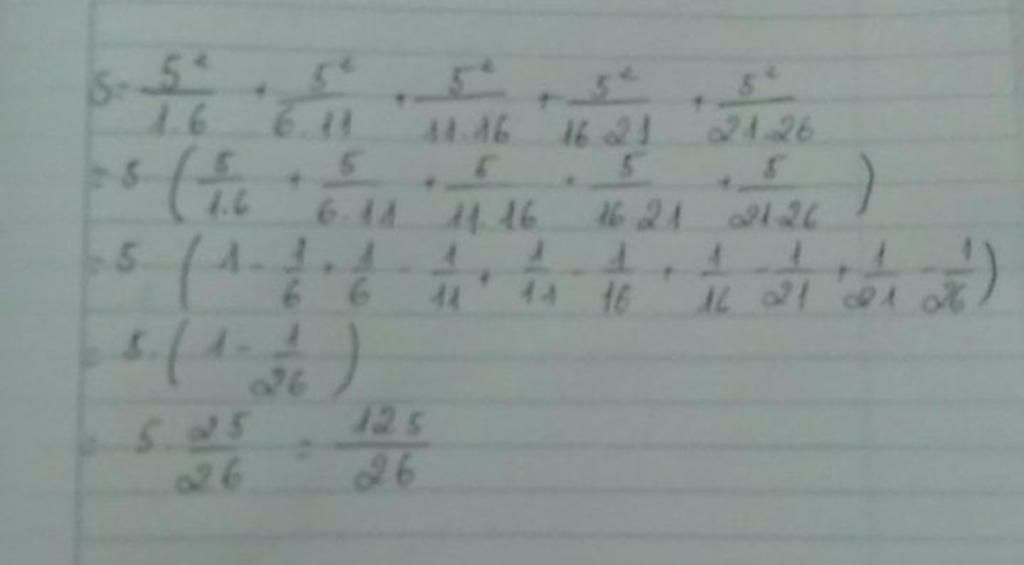 S = 5²/1.6 + 5²/6.11 + 5²/11.16 + 5²/16.21 + 5²/21.26
= 5 ( 5/1.6 + 5/6.11 + 5/11.16 + 5/16.21 + 5/21.26 )
= 5 ( 1 - 1/6 + 1/6 - 1/11 + 1/11 - 1/16 + 1/16 - 1/21 + 1/21 - 1/26 )
= 5 . ( 1 - 1/26 )
= 5 . 25/26 = 125/26